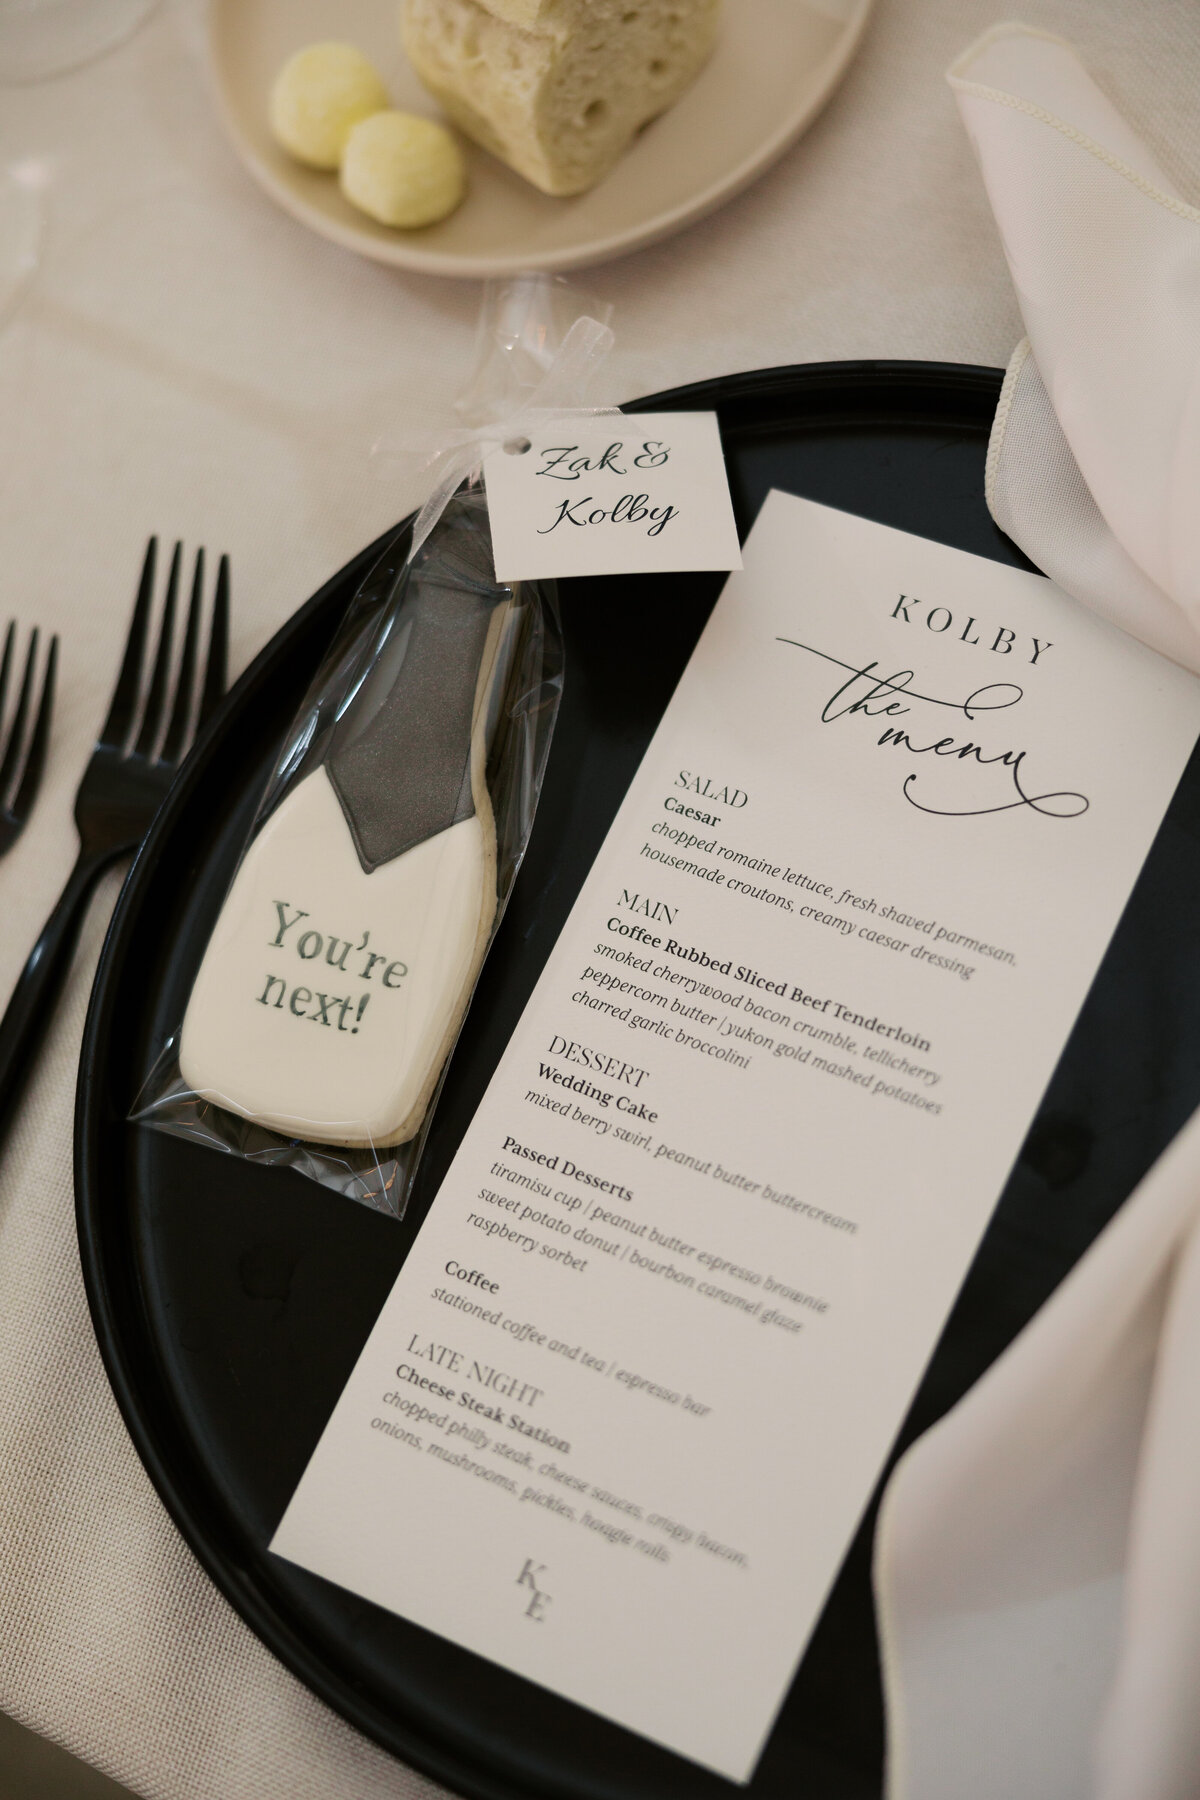 Zak &
Kolby
You're
next!
KOLBY
the
menu
SALAD
Caesar
chopped romaine lettuce, fresh shaved parmesan,
housemade croutons, creamy caesar dressing
MAIN
Coffee Rubbed Sliced Beef Tenderloin
smoked cherrywood bacon crumble, tellicherry
peppercorn butter | yukon gold mashed potatoes
charred garlic broccolini
DESSERT
Wedding Cake
mixed berry swirl, peanut butter buttercream
Passed Desserts
tiramisu cup | peanut butter espresso brownie
sweet potato donut | bourbon caramel glaze
raspberry sorbet
Coffee
stationed coffee and tea | espresso bar
LATE NIGHT
Cheese Steak Station
chopped philly steak, cheese sauces, crispy bacon,
onions, mushrooms, pickles, hoagie rolls
K
E